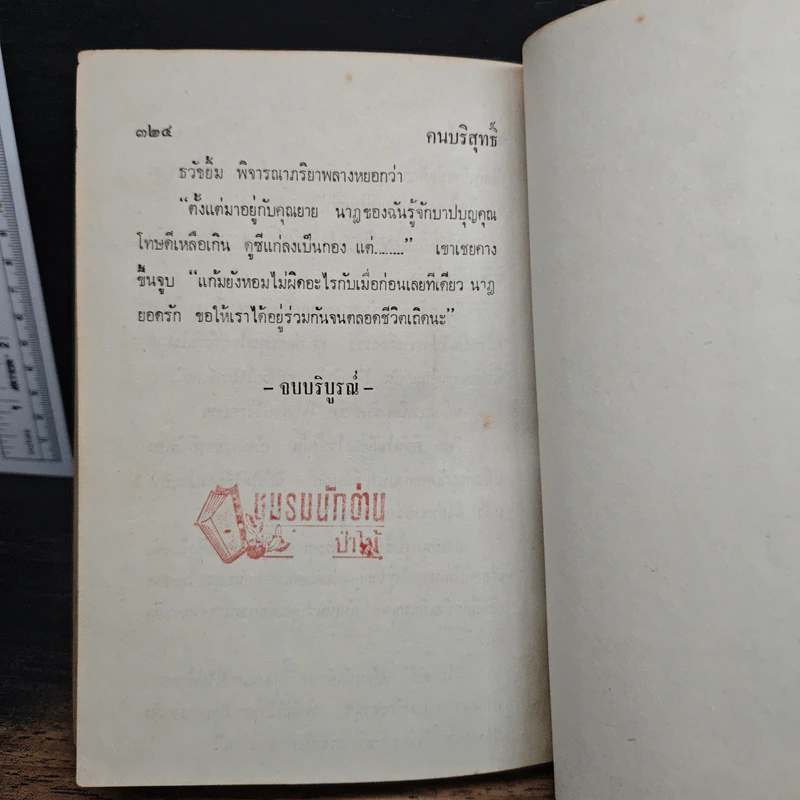 ๓๒๔ คนบริสุทธิ์
ธวัชยิ้ม พิจารณาภริยาพลางหยอกว่า
“ตั้งแต่มาอยู่กับคุณยาย นาฎของฉันรู้จักบาปบุญคุณ
โทษดีเหลือเกิน ดูซีแก่ลงเป็นกอง แต่........” เขาเชยคาง
ขึ้นจูบ “แก้มยังหอมไม่ผิดอะไรกับเมื่อก่อนเลยทีเดียว นาฎ
ยอดรัก ขอให้เราได้อยู่ร่วมกันจนตลอดชีวิตเถิดนะ”
– จบบริบูรณ์ –
ชมรมนักอ่าน
ป่าไม้